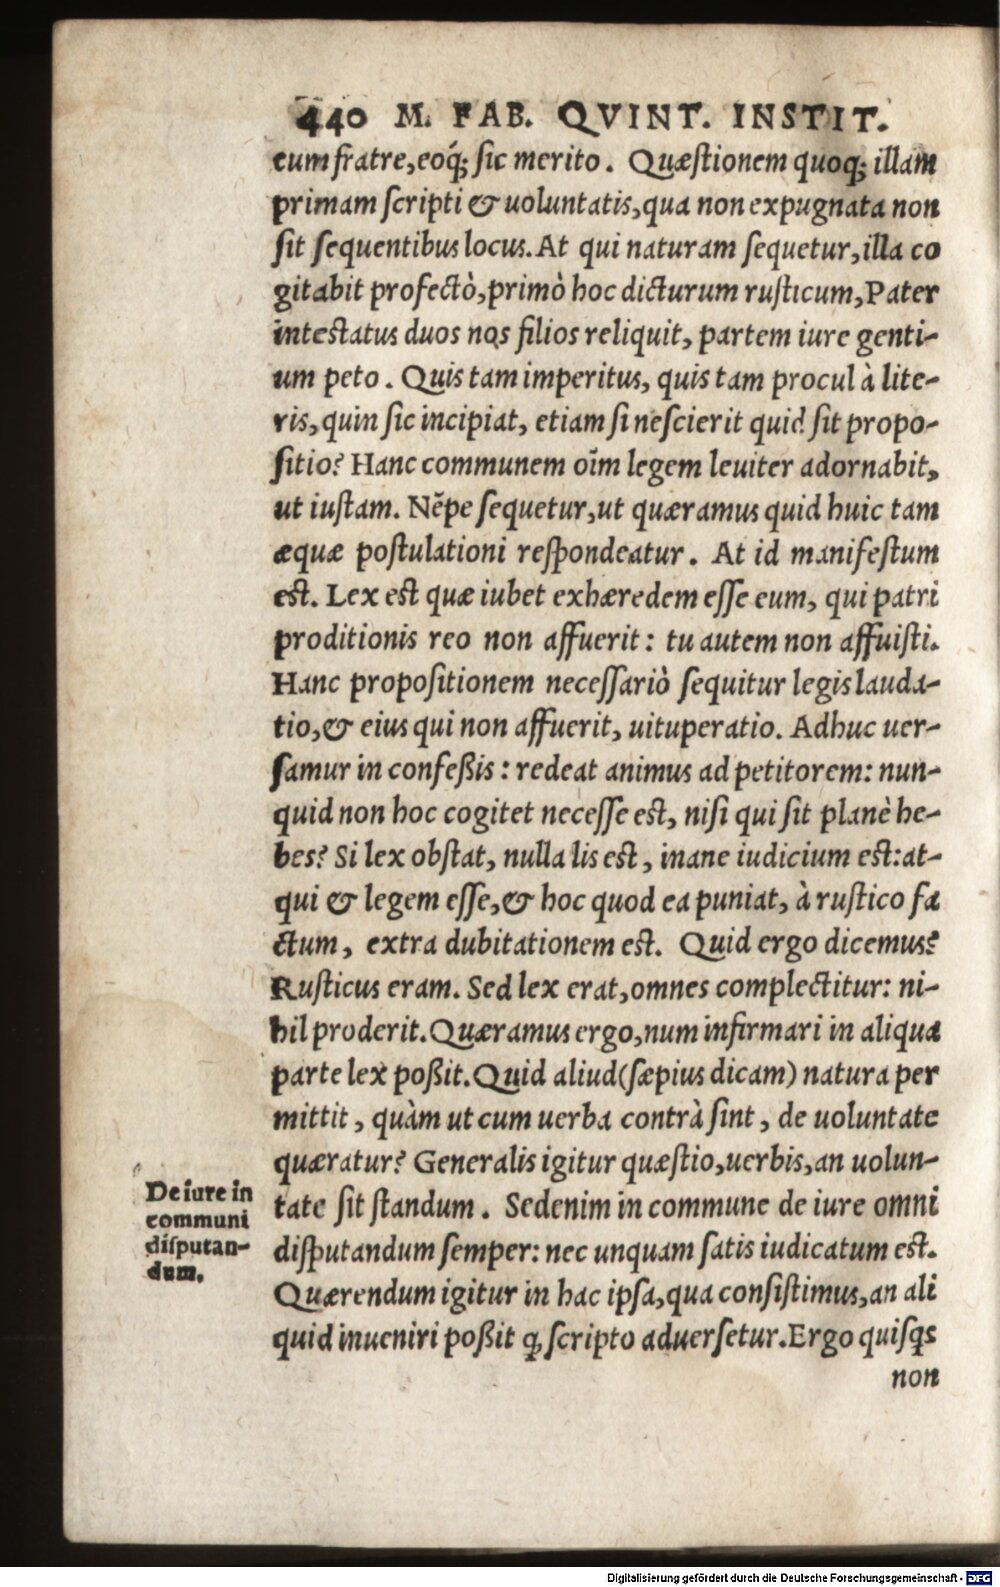 440 M. FAB. QVINT. INSTIT.
cum fratre, eoq́; sic merito. Quæstionem quoq; illam
primam scripti & uoluntatis, qua non expugnata non
sit sequentibus locus. At qui naturam sequetur, illa co
gitabit profectò, primò hoc dicturum rusticum, Pater
intestatus duos nos filios reliquit, partem iure genti-
um peto. Quis tam imperitus, quis tam procul à lite-
ris, quin sic incipiat, etiam si nescierit quid sit propo-
sitio? Hanc communem oīm legem leuiter adornabit,
ut iustam. Nēpe sequetur, ut quæramus quid huic tam
æquæ postulationi respondeatur. At id manifestum
est. Lex est quæ iubet exhæredem esse eum, qui patri
proditionis reo non affuerit: tu autem non affuisti.
Hanc propositionem necessariò sequitur legis lauda-
tio, & eius qui non affuerit, uituperatio. Adhuc uer-
samur in confeßis: redeat animus ad petitorem: nun-
quid non hoc cogitet necesse est, nisi qui sit planè he-
bes? Si lex obstat, nulla lis est, inane iudicium est: at-
qui & legem esse, & hoc quod ea puniat, à rustico fa
ctum, extra dubitationem est. Quid ergo dicemus?
Rusticus eram. Sed lex erat, omnes complectitur: ni-
hil proderit. Quæramus ergo, num infirmari in aliqua
parte lex poßit. Quid aliud (sæpius dicam) natura per
mittit, quàm ut cum uerba contrà sint, de uoluntate
quæratur? Generalis igitur quæstio, uerbis, an uolun-
tate sit standum. Sed enim in commune de iure omni
disputandum semper: nec unquam satis iudicatum est.
Quærendum igitur in hac ipsa, qua consistimus, an ali
quid inueniri poßit ꝙ scripto aduersetur. Ergo quisqs
non
De iure in
communi
disputan-
dum.
Digitalisierung gefördert durch die Deutsche Forschungsgemeinschaft - DFG